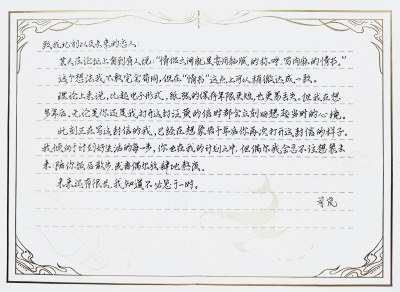 致我此刻以及未来的爱人:
某天在论坛上看到有人说:“情侣之间就是要闹肉麻的称呼,写肉麻的情书。”
这个想法我不敢完全苟同,但在“情书”这点上可以稍微达成一致。
理论上来说,比起电子形式,纸张的保存年限更短,也更易丢失。但我在想
多年后,无论是你还是我,打开这封泛黄的信时都会立刻回想起当时的心境。
此刻正在写这封信的我,已经在想象若干年后你再次打开这封信的样子。
我倾向于计划好生活的每一步,你也在我的计划之中,但偶尔我会忍不住想象未
来,陪你饭后散步,或者偶尔放肆地熬夜。
未来还有很长,我知道不必急于一时。